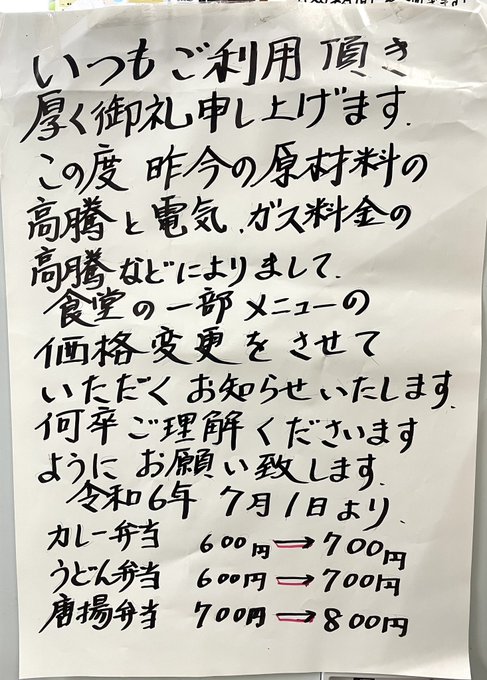 いつもご利用頂き
厚く御礼申し上げます.
この度 昨今の原材料の
高騰と電気、ガス料金の
高騰などによりまして、
食堂の一部メニューの
価格変更をさせて
いただくお知らせいたします.
何卒ご理解くださいます
ようにお願い致します.
令和6年 7月1日より.
カレー弁当 600円→700円
うどん弁当 600円→700円
唐揚弁当 700円→800円